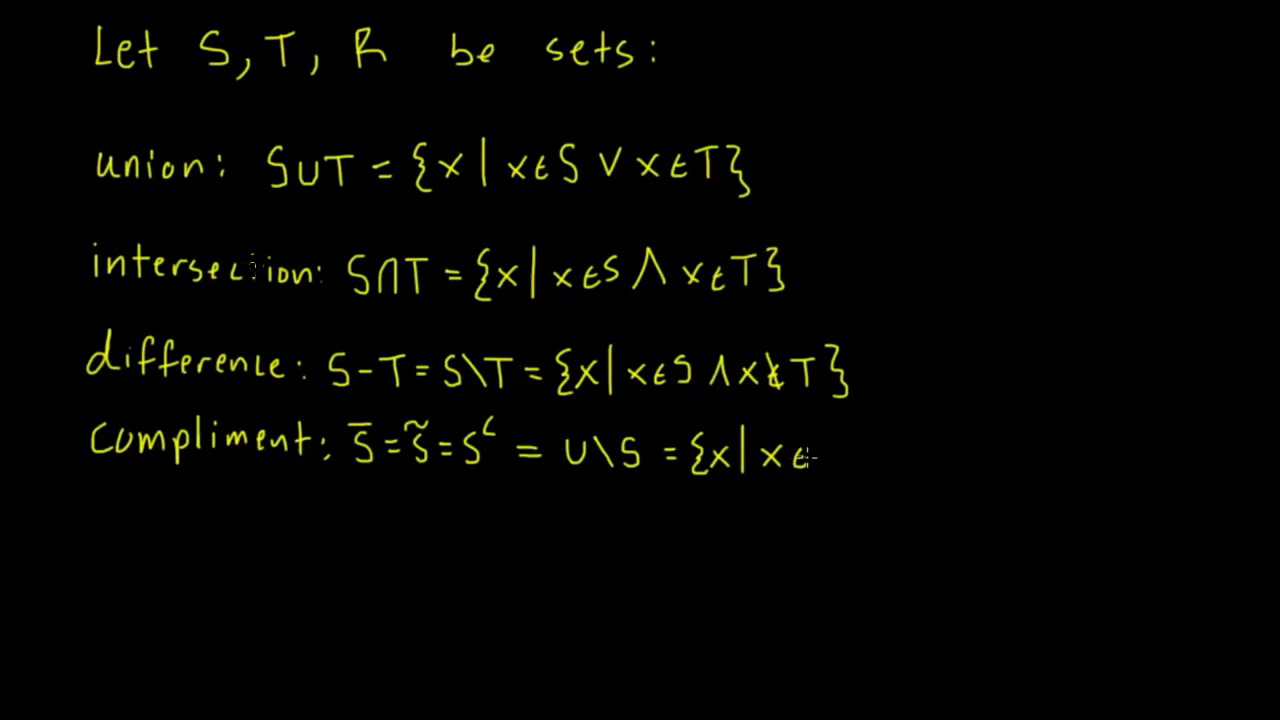 Let S, T, R be sets:
union: S∪T = {x | x∈S ∨ x∈T}
intersection: S∩T = {x | x∈S ∧ x∈T}
difference: S-T = S\T = {x | x∈S ∧ x∉T}
Compliment: S̅ = S̃ = Sᶜ = U\S = {x | x∈